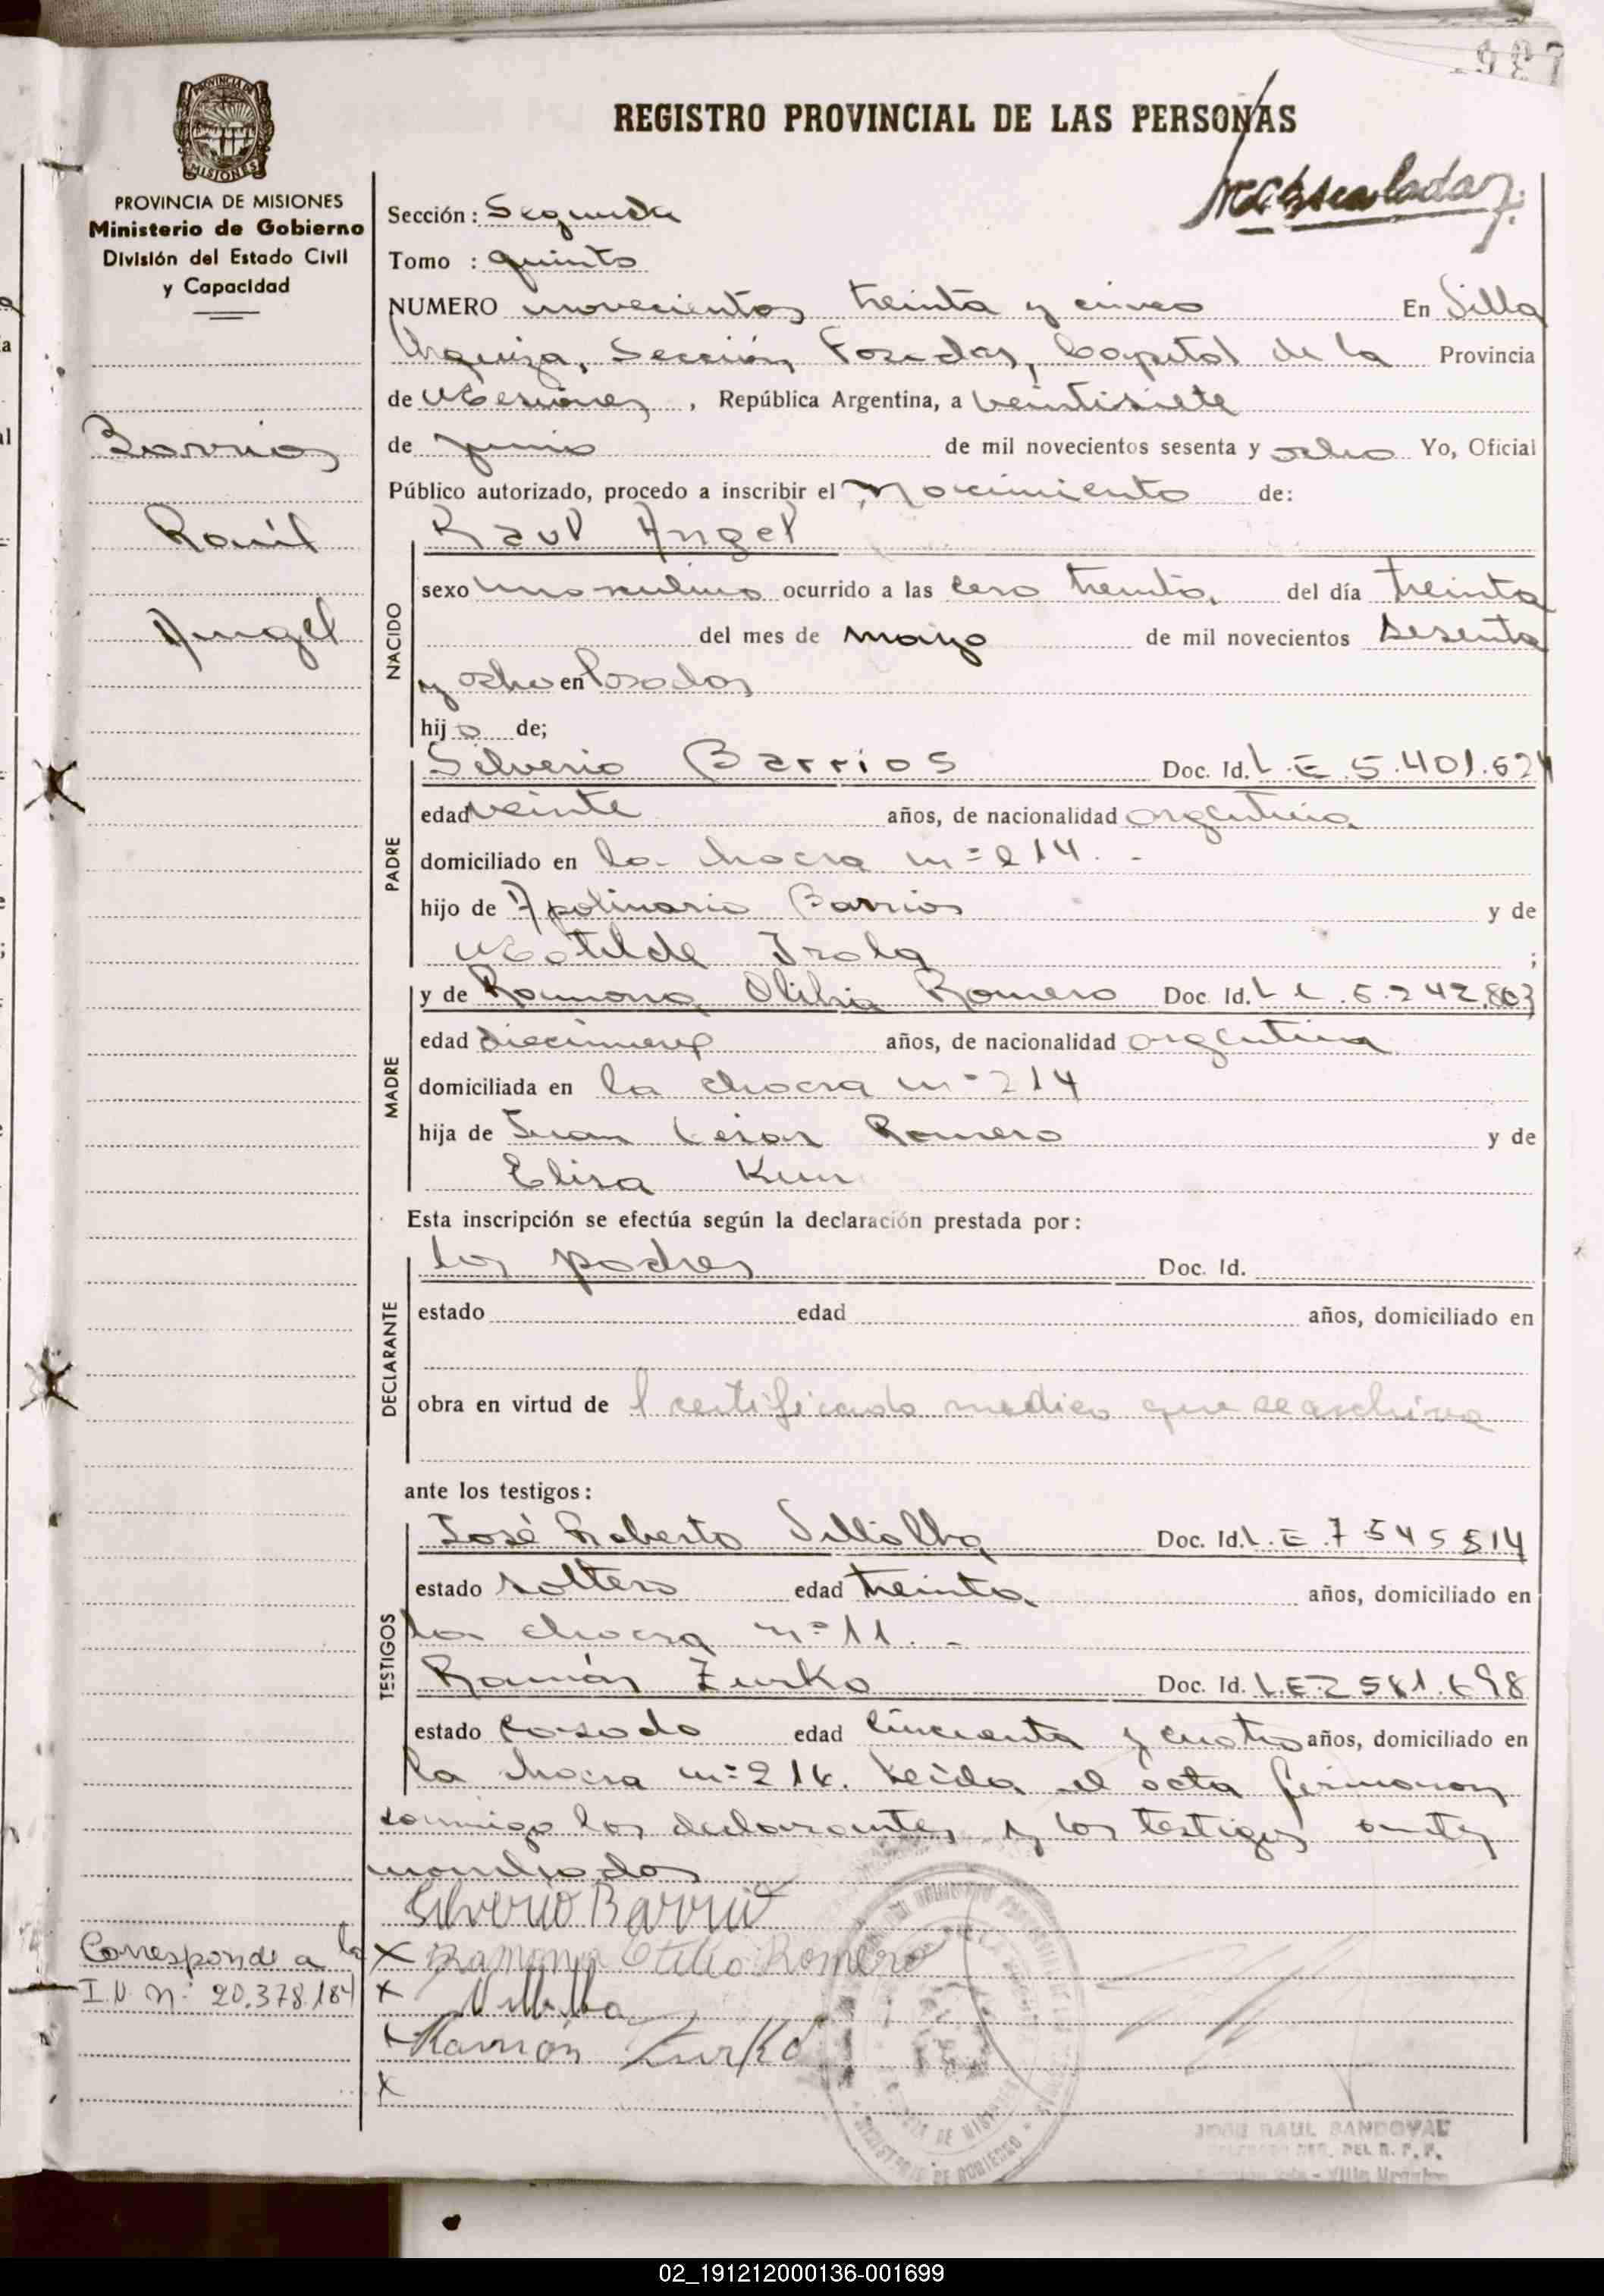 REGISTRO PROVINCIAL DE LAS PERSONAS
PROVINCIA DE
MISIONES
PROVINCIA DE MISIONES
Ministerio de Gobierno
División del Estado Civil
y Capacidad
Sección: Segunda
Tomo : quinto
NUMERO novecientos treinta y cinco En Villa
Urquiza, Sección Posadas, Capital de la Provincia
de Misiones, República Argentina, a veintisiete
de junio de mil novecientos sesenta y ocho Yo, Oficial
Público autorizado, procedo a inscribir el Nacimiento de:
Barrios
Raúl
Angel
NACIDO
Raul Angel
sexo masculino ocurrido a las cero treinta, del día treinta
del mes de mayo de mil novecientos sesenta
y ocho en Posadas
hijo de;
PADRE
Silverio Barrios Doc. Id. L.E. 5.401.624
edad veinte años, de nacionalidad argentina
domiciliado en la chacra nº 214. -
hijo de Apolinario Barrios y de
Matilde Irala ;
MADRE
y de Ramona Romero Doc. Id. L.C. 6.242.803
edad diecinueve años, de nacionalidad argentina
domiciliada en la chacra nº 214
hija de Juan Cesar Romero y de
Elisa Kun
Esta inscripción se efectúa según la declaración prestada por:
DECLARANTE
los padres Doc. Id.
estado edad años, domiciliado en
obra en virtud de l certificado medico que se archiva
ante los testigos:
TESTIGOS
José Roberto Villalba Doc. Id. L.E. 7.545.514
estado soltero edad treinta, años, domiciliado en
la chacra nº 11. -
Ramón Zurko Doc. Id. L.E. 2.581.698
estado casado edad cincuenta y cuatro años, domiciliado en
la chacra nº 214. Leida el acta firmaron
conmigo los declarantes y los testigos ante
nombrados
Silverio Barrio
X Ramona Otilia Romero
X Villalba
X Ramón Zurko
X
Corresponde a la
I.N. nº 20.378.184
JOSE RAUL SANDOVAL
DEL R. P. P.
Villa Urquiza
02_191212000136-001699